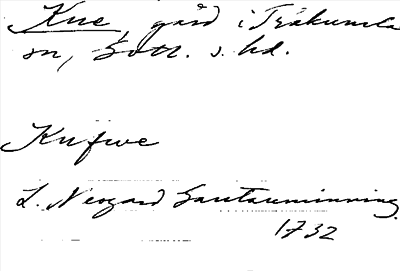 Kne, gård i Träkumla
sn, Gotl. s. hd.
Knfwe
L. Neogard Gautauminning
1732